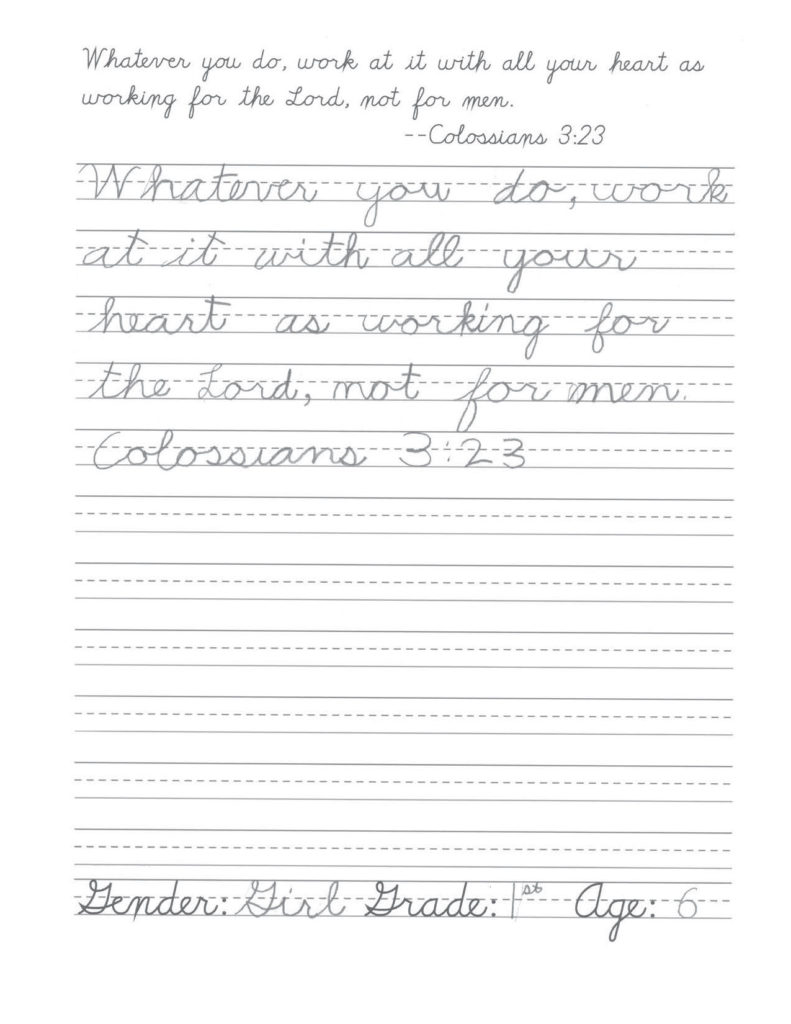 Whatever you do, work at it with all your heart as
working for the Lord, not for men.
--Colossians 3:23
Whatever you do, work
at it with all your
heart as working for
the Lord, not for men.
Colossians 3:23
Gender: Girl Grade: 1st Age: 6